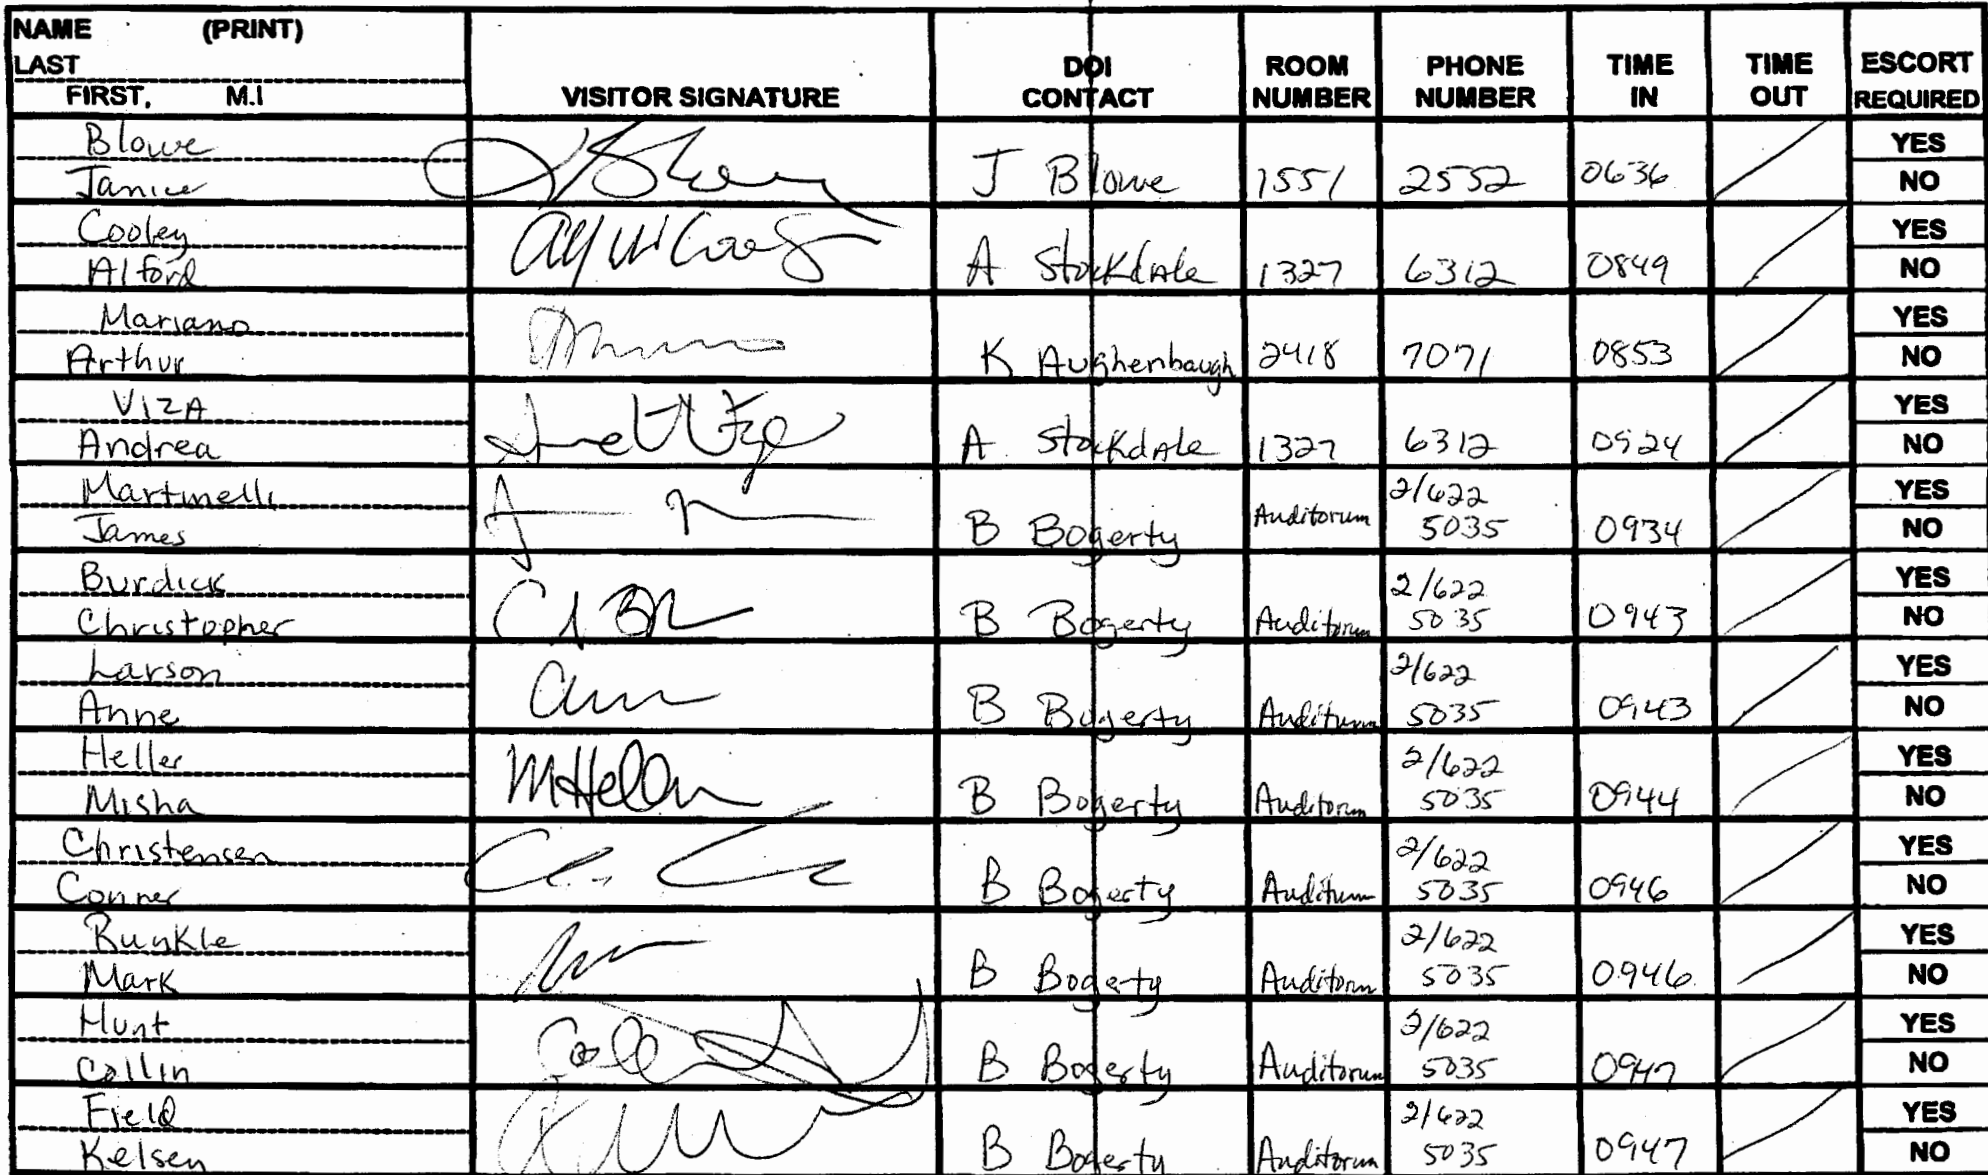 NAME (PRINT)
LAST
FIRST, M.I
VISITOR SIGNATURE
DOI CONTACT
ROOM NUMBER
PHONE NUMBER
TIME IN
TIME OUT
ESCORT REQUIRED
Blowe
Janice
J Blowe 1551 2552 0636
YES
NO
Cooley
Alford
A Stockdale 1327 6312 0849
YES
NO
Mariano
Arthur
K Aughenbaugh 2418 7071 0853
YES
NO
VIZA
Andrea
A Stockdale 1327 6312 0924
YES
NO
Martinelli
James
2/622
B Bogerty Auditorum 5035 0934
YES
NO
Burdick
Christopher
2/622
B Bogerty Auditorum 5035 0943
YES
NO
Larson
Anne
2/622
B Bogerty Auditurm 5035 0943
YES
NO
Heller
Misha
MHeller
2/622
B Bogerty Auditorum 5035 0944
YES
NO
Christensen
Conner
2/622
B Bogerty Auditurm 5035 0946
YES
NO
Runkle
Mark
2/622
B Bogerty Auditorum 5035 0946
YES
NO
Hunt
Collin
2/622
B Bogerty Auditorum 5035 0947
YES
NO
Field
Kelsen
2/622
B Bogerty Auditorum 5035 0947
YES
NO